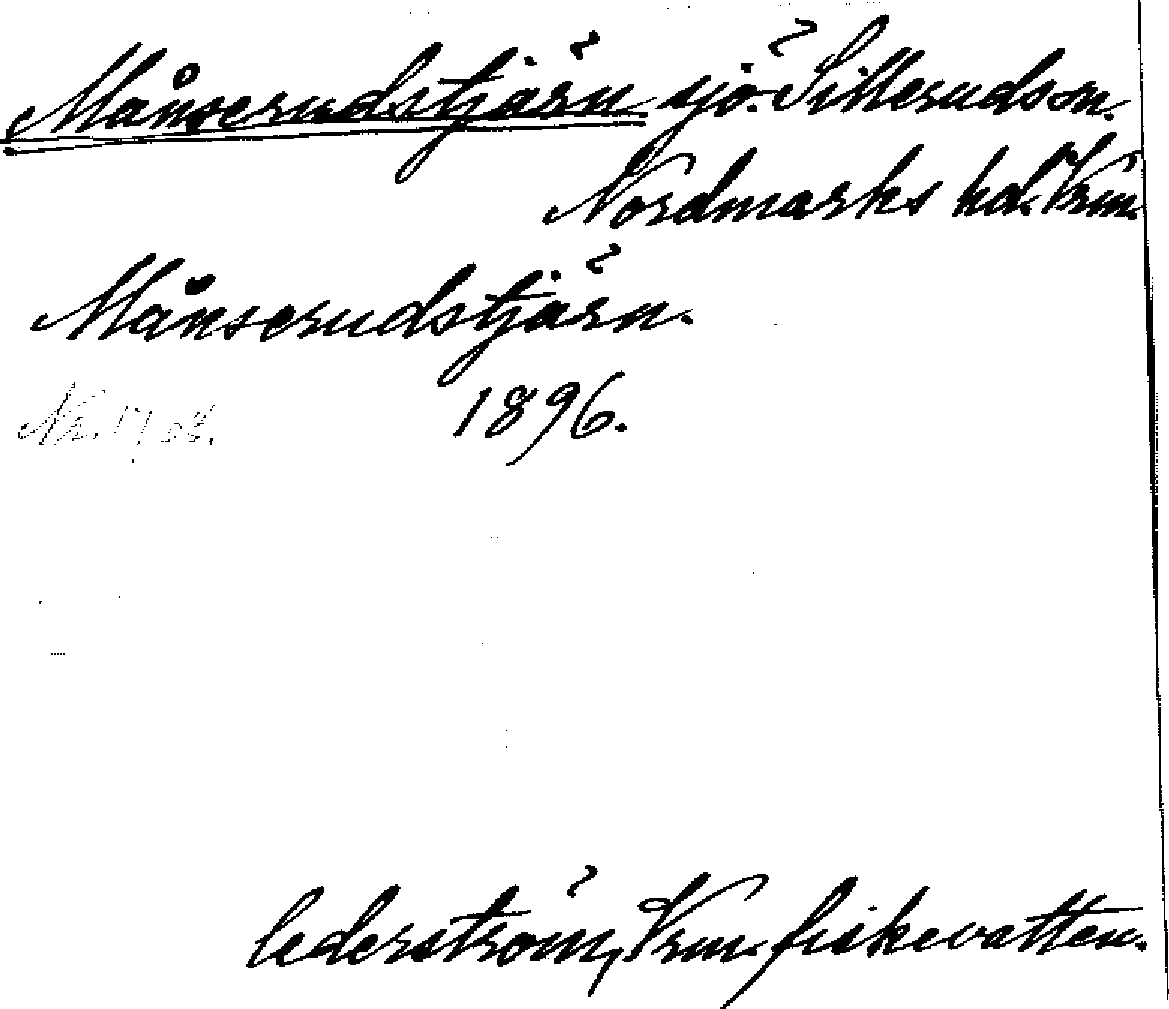 Månserudstjärn sjö. Sillerudssn.
Nordmarks hd. Vrm.
Månserudstjärn.
1896.
Nr.
Cederström, Vrm. fiskevatten.